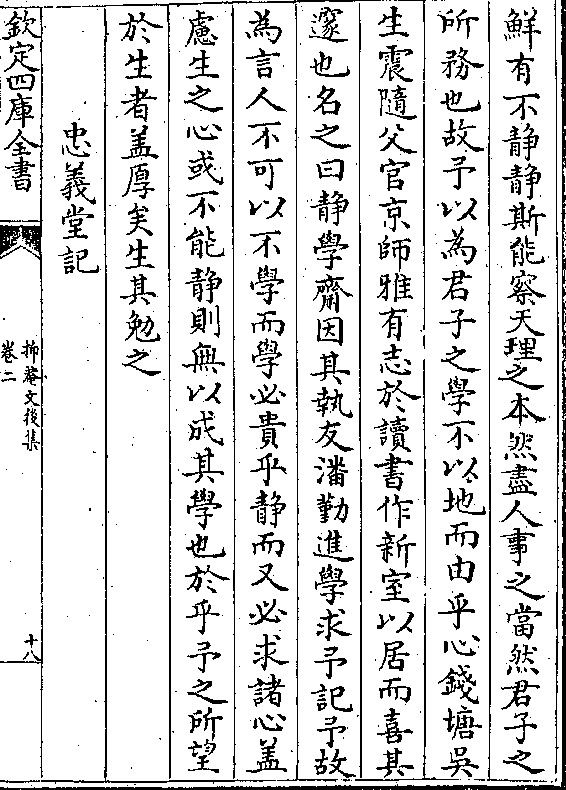 鮮有不静静斯能察天理之本然盡人事之當然君子之
所務也故予以為君子之學不以地而由乎心錢塘吳
生震隨父官京師雅有志於讀書作新室以居而喜其
邃也名之曰静學齋因其執友潘勤進學求予記予故
為言人不可以不學而學必貴乎静而又必求諸心盖
慮生之心或不能静則無以成其學也於乎予之所望
於生者盖厚矣生其勉之
忠義堂記
欽定四庫全書
抑菴文後集
卷二
十八